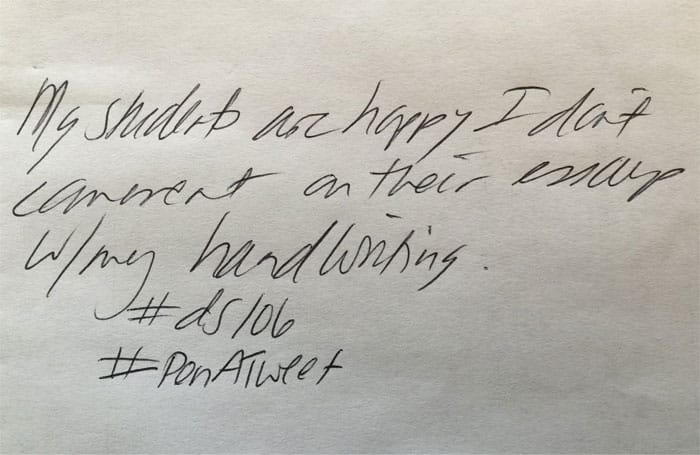 My students are happy I don't
comment on their essays
w/my handwriting.
#ds106
#PenATweet